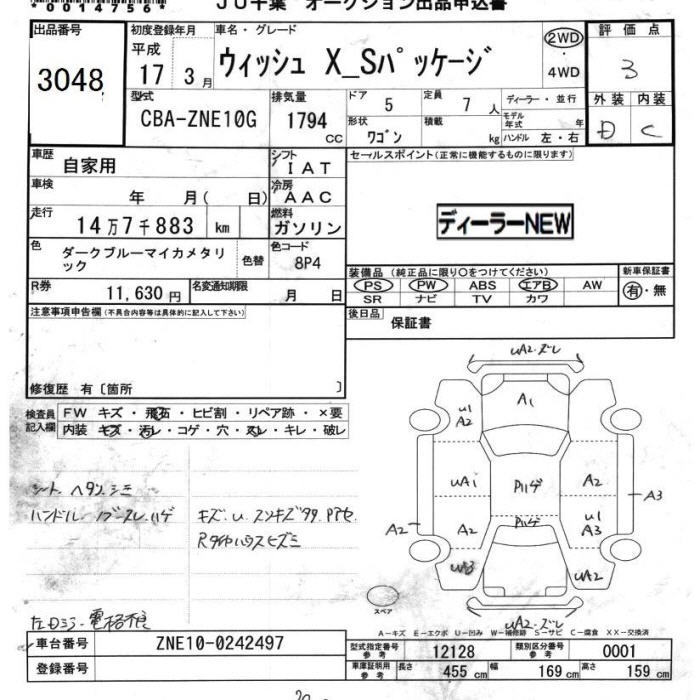 *0014756*
JU千葉 オークション出品申込書
出品番号
3048
初度登録年月
平成
17 3月
車名・グレード
ウィッシュ X_Sパッケージ
2WD
4WD
評価点
3
外装 内装
D C
型式
CBA-ZNE10G
排気量
1794 cc
ドア 5
定員 7 人
形状 ワゴン
積載 kg
ディーラー・並行
モデル年式 年
ハンドル 左・右
車歴 自家用
シフト IAT
車検 年 月( 日)
冷房 AAC
走行 14万7千883 km
燃料 ガソリン
色 ダークブルーマイカメタリック
色替
色コード 8P4
R券 11,630円
名変通知期限 月 日
セールスポイント(正常に機能するものに限ります)
ディーラーNEW
装備品(純正品に限り〇をつけてください)
PS PW ABS エアB AW
SR ナビ TV カワ
新車保証書
有・無
後日品 保証書
注意事項申告欄(不具合内容等は具体的に記入して下さい)
修復歴 有〔箇所 〕
検査員記入欄
FW キズ・飛石・ヒビ割・リペア跡・×要
内装 キズ・汚レ・コゲ・穴・スレ・キレ・破レ
シート ヘタンシミ
ハンドル
キズ U
左Dミラー電格不良
UA2・ズレ
A1
U1
A2
UA1
Pハゲ
A2
A3
A2
A2
Pハゲ
U1
A3
UA2
UA2・ズレ
スペア
A-キズ E-エクボ U-凹み W-補修跡 S-サビ C-腐食 XX-交換済
車台番号 ZNE10-0242497
登録番号
型式指定番号参考 12128
類別区分番号参考 0001
車庫証明用参考
長さ 455 cm
幅 169 cm
高さ 159 cm